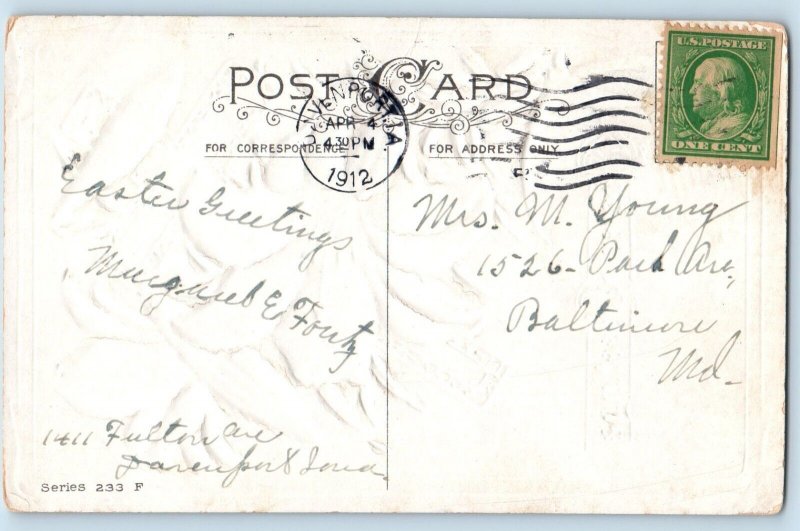 POST CARD
FOR CORRESPONDENCE
FOR ADDRESS ONLY
DAVENPORT, IA
APR 4
4.30 PM
1912
U.S. POSTAGE
ONE CENT
Easter Greetings
Margaret E
1411 Fulton Ave
Davenport Iowa.
Series 233 F
Mrs. M. Young
1526- Park Ave,
Baltimore
Md.